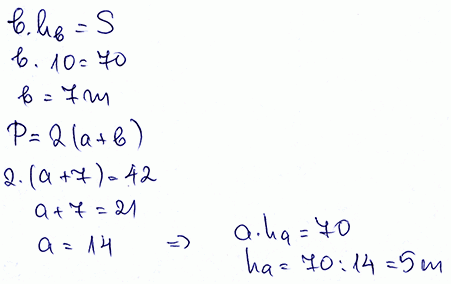 b.hb = S
b. 10 = 70
b = 7m
P = 2(a+b)
2.(a+7) = 42
a+7 = 21
a = 14 => a.ha = 70
ha = 70:14 = 5m